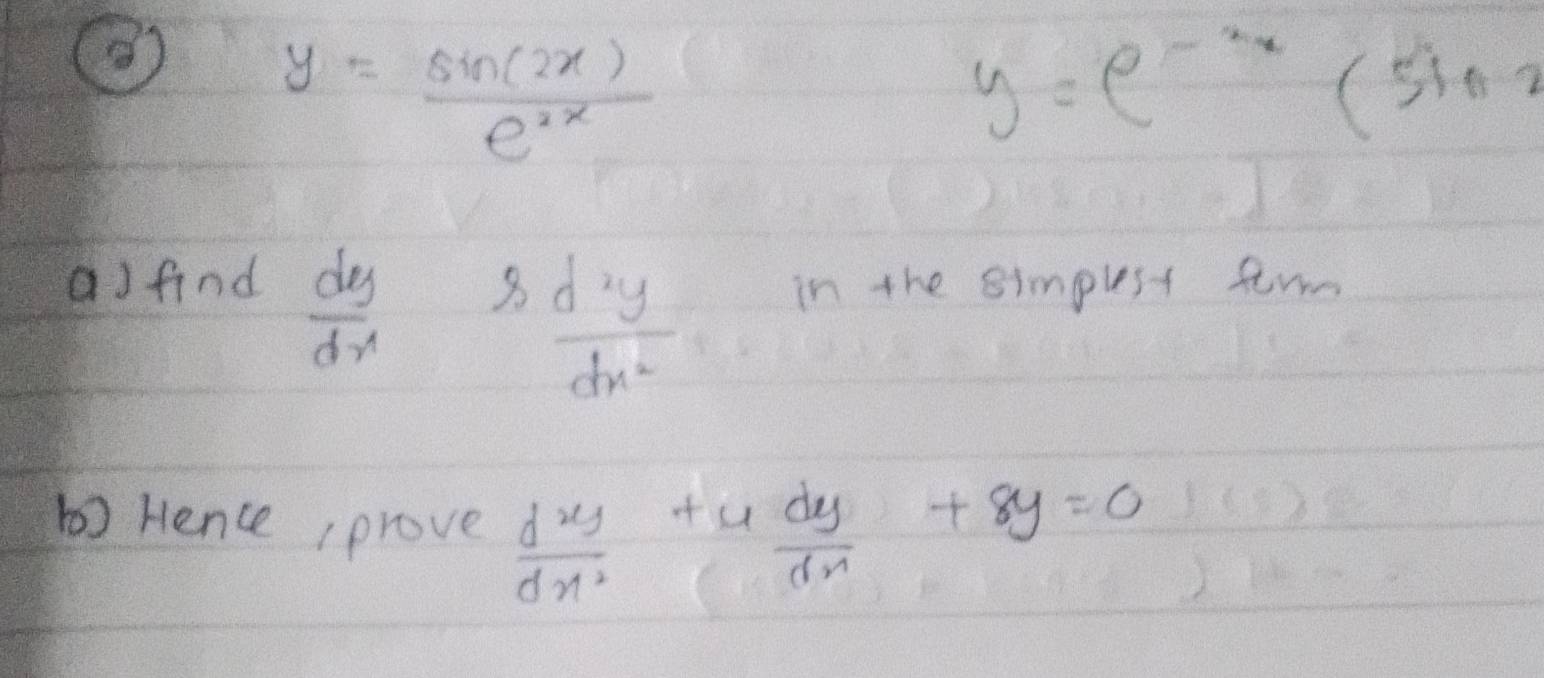 ② y = sin(2x) / e^2x y = e^-2x (sin 2
a) find dy/dx & d²y/dx² in the simplest form
b) Hence, prove d²y/dx² + 4 dy/dx + 8y = 0